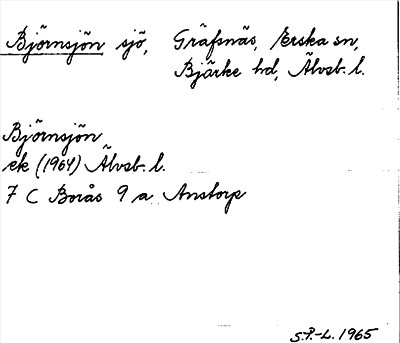 Björnsjön sjö, Gräfsnäs, Erska sn,
Bjärke hd, Älvsb. l.
Björnsjön
ek (1964) Älvsb. l.
7 C Borås 9 a Anstorp
S.P.-L. 1965